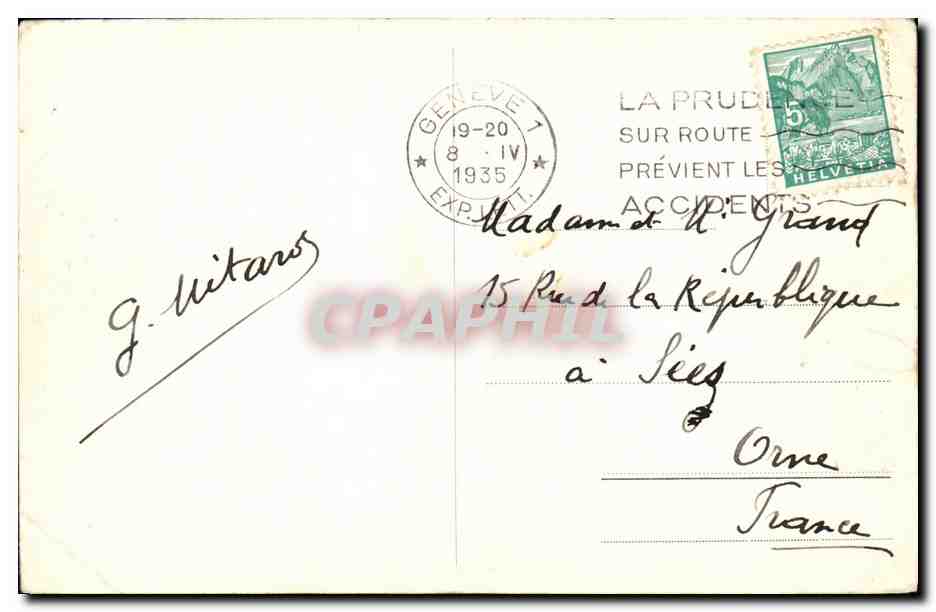 GENÈVE 1
19-20
8 · IV
1935
EXP. LETT.
LA PRUDENCE
SUR ROUTE
PRÉVIENT LES
ACCIDENTS
5
HELVETIA
Madame et Mr Grand
15 Rue de la République
à Sées
Orne
France
G. Mitaros
CPAPHIL